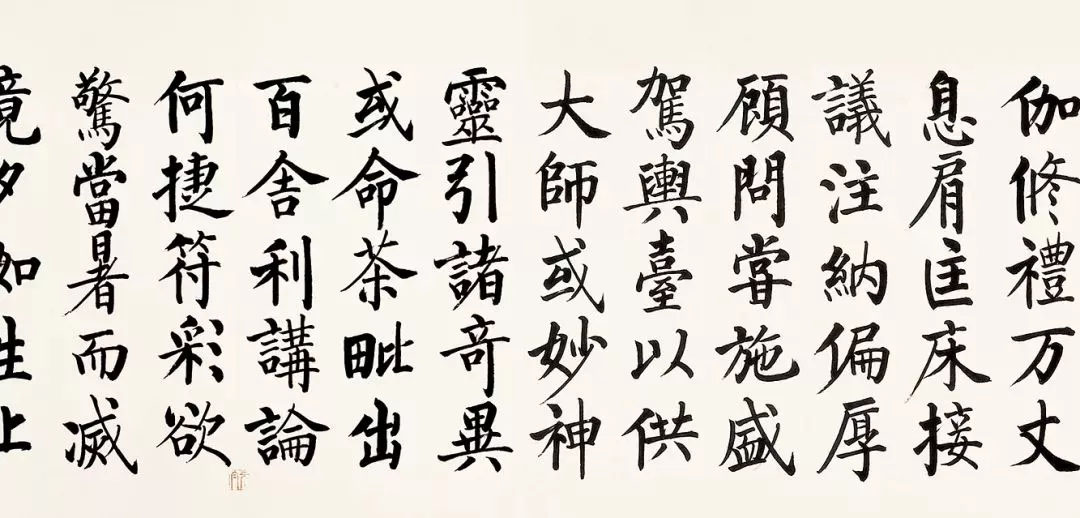 伽修禮万丈
息肩匡床接
議注納偏厚
顧問甞施盛
駕輿臺以供
大師或妙神
靈引諸奇異
或命茶毗出
百舍利講論
何捷符彩欲
驚當暑而滅
竟夕如生止